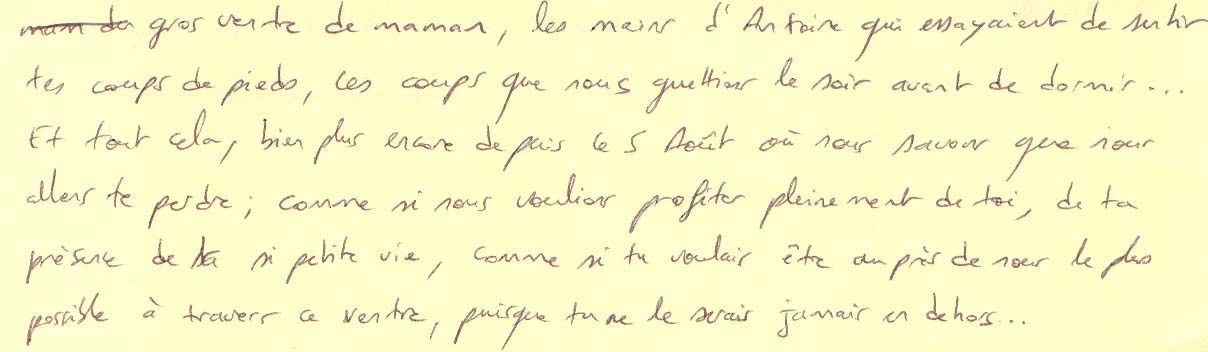 gros ventre de maman, les mains d'Antoine qui essayaient de sentir
tes coups de pieds, ces coups que nous guettions le soir avant de dormir...
Et tout cela, bien plus encore depuis ce 5 Août où nous savons que nous
allons te perdre ; comme si nous voulions profiter pleinement de toi, de ta
présence de ta si petite vie, comme si tu voulais être auprès de nous le plus
possible à travers ce ventre, puisque tu ne le serais jamais en dehors...